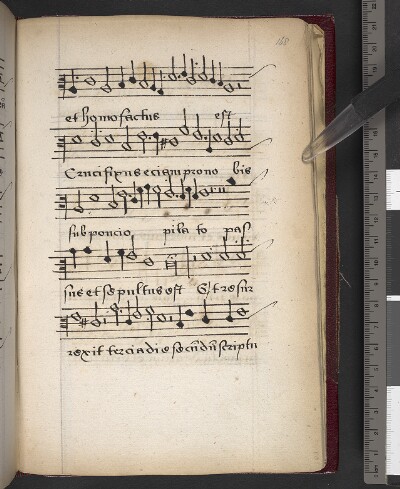 168
et homo factus est
Crucifixus eciam pro no bis
sub poncio pila to pas
sus et sepultus est Et resur
rexit tercia die secūdū scriptu